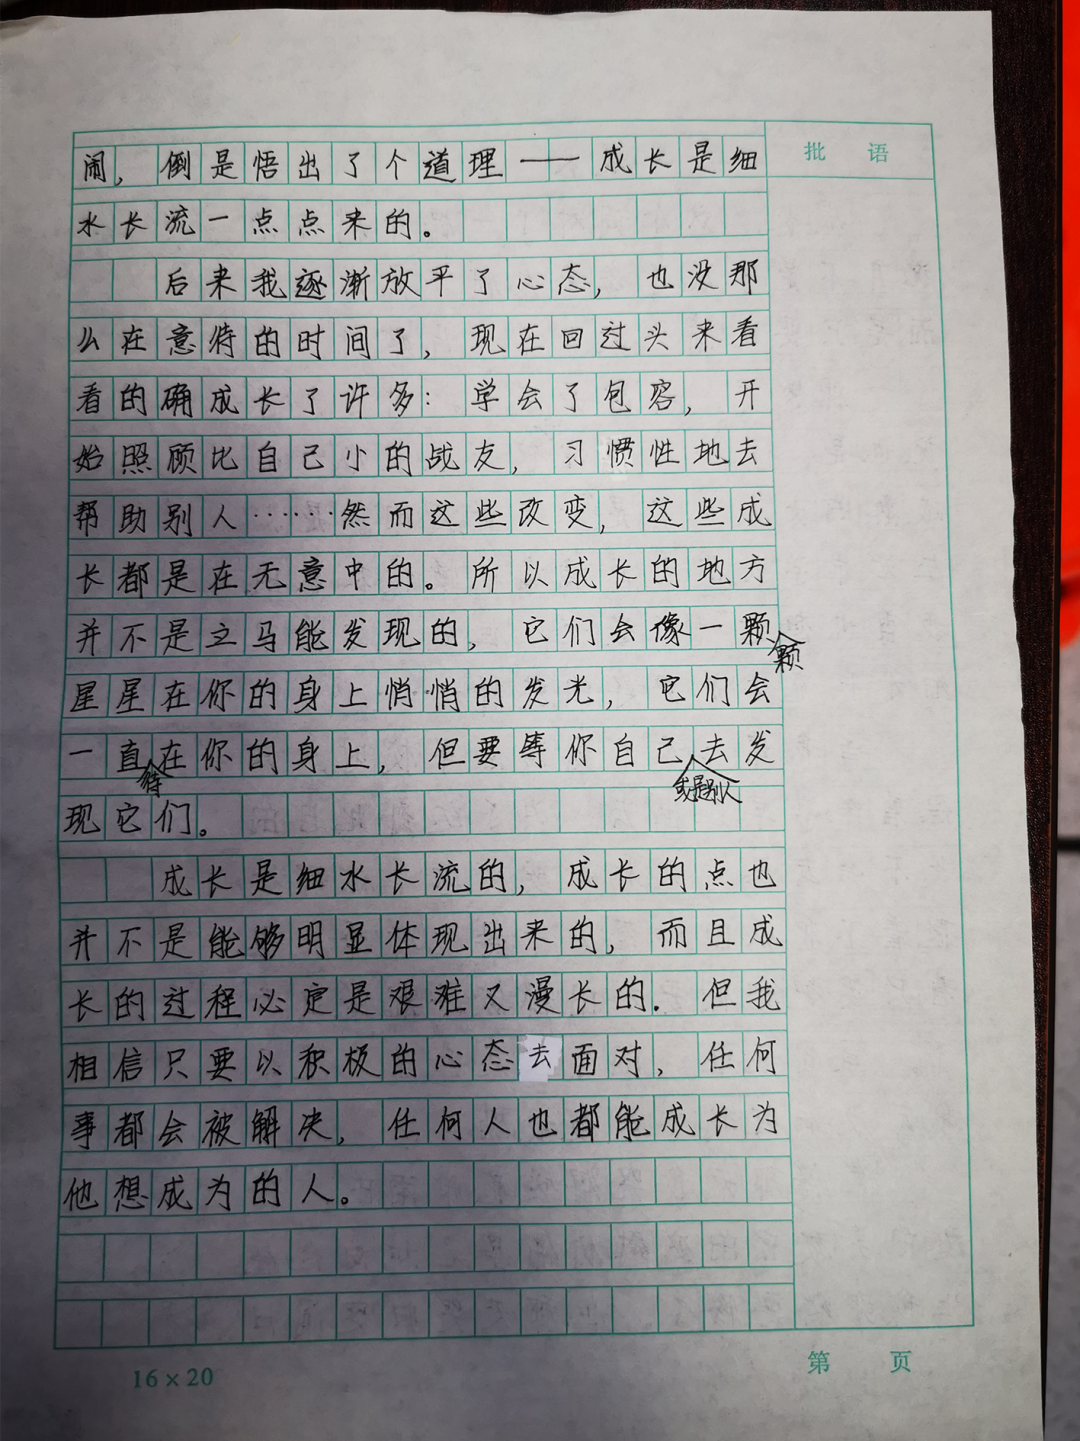 批 语
闹，倒是悟出了个道理——成长是细
水长流一点点来的。
后来我逐渐放平了心态，也没那
么在意待的时间了，现在回过头来看
看的确成长了许多：学会了包容，开
始照顾比自己小的战友，习惯性地去
帮助别人……然而这些改变，这些成
长都是在无意中的。所以成长的地方
并不是立马能发现的，它们会像一颗
颗
星星在你的身上悄悄的发光，它们会
一直在你的身上，但要等你自己去发
待
或是别人
现它们。
成长是细水长流的，成长的点也
并不是能够明显体现出来的，而且成
长的过程必定是艰难又漫长的．但我
相信只要以积极的心态去面对，任何
事都会被解决，任何人也都能成长为
他想成为的人。
16×20
第 页